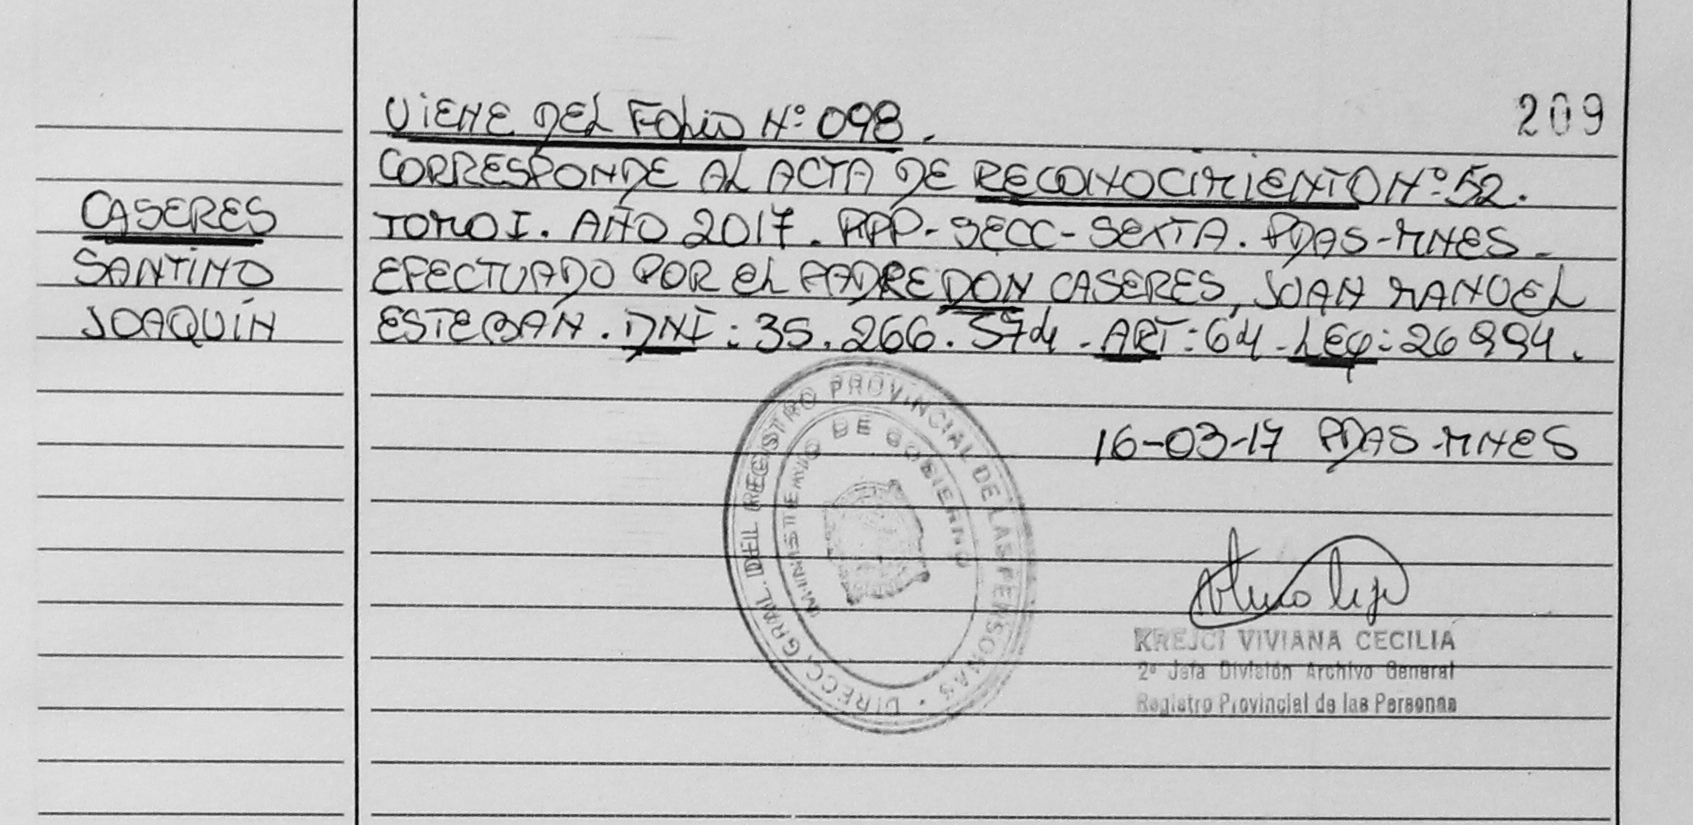 209
VIENE DEL FOLIO Nº 098.
CORRESPONDE AL ACTA DE RECONOCIMIENTO Nº 52.
CASERES
TOMO I. AÑO 2017. RPP-SECC-SEXTA. PDAS-MNES-
SANTINO
EFECTUADO POR EL PADRE DON CASERES, JUAN MANUEL
JOAQUÍN
ESTEBAN. DNI: 35.266.574 - ART: 64 - LEY: 26994.
16-03-17 PDAS-MNES
DIRECC. GRAL. DEL REGISTRO PROVINCIAL DE LAS PERSONAS
MINISTERIO DE GOBIERNO
KREJCI VIVIANA CECILIA
2º Jefa División Archivo General
Registro Provincial de las Personas